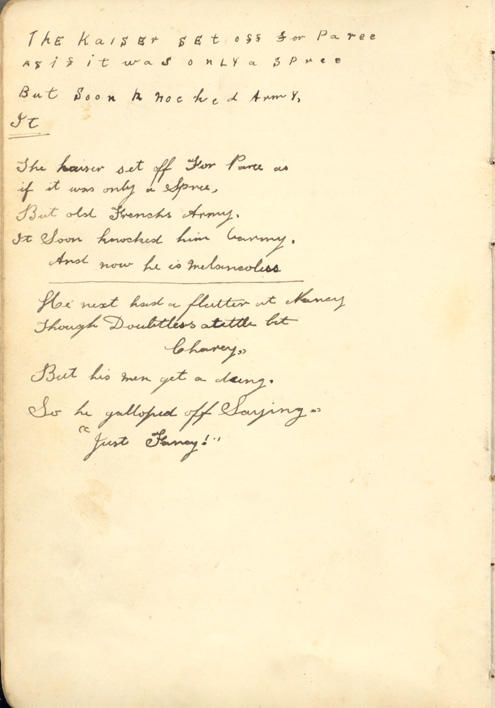 The Kaiser set off for Paree
as if it was only a Spree
But Soon k nocked Army,
It
The kaiser set off For Paree as
if it was only a Spree,
But old Frenchs Army.
It Soon knocked him barmy.
And now he is
He next had a flutter at Nancy
Though Doubtless a little bit
Chancy,,
But his men get a
So he galloped off Saying,,
"Just Fancy!"